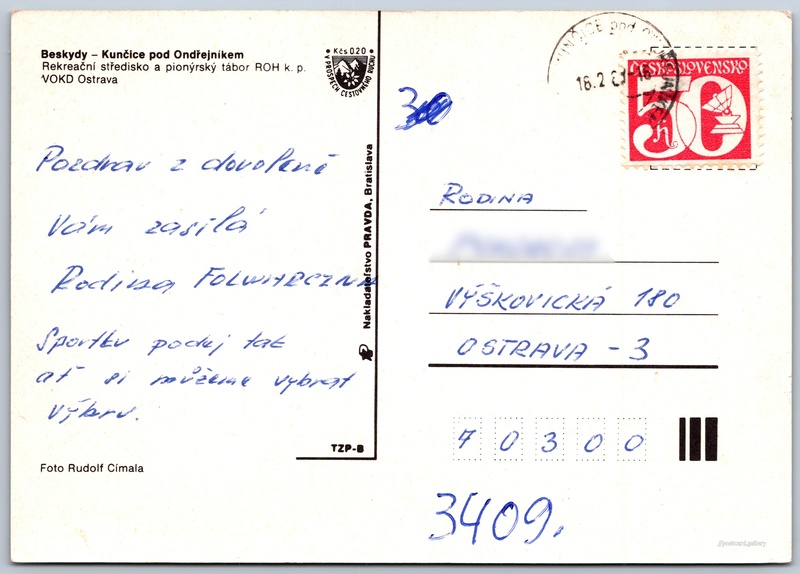 Beskydy – Kunčice pod Ondřejníkem
Rekreační středisko a pionýrský tábor ROH k. p.
VOKD Ostrava
Kčs 020
V PROSPĚCH CESTOVNÍHO RUCHU
KUNČICE pod
16.2
ČESKOSLOVENSKO
50 h
30
Pozdrav z dovolené
Vám zasílá
Rodina FOLWARCZNN
Sportku podej tak
ať si můžeme vybrat
výhru.
Nakladateľstvo PRAVDA, Bratislava
TZP-B
Foto Rudolf Címala
RODINA
VÝŠKOVICKÁ 180
OSTRAVA - 3
7 0 3 0 0
3409.
postcard.gallery